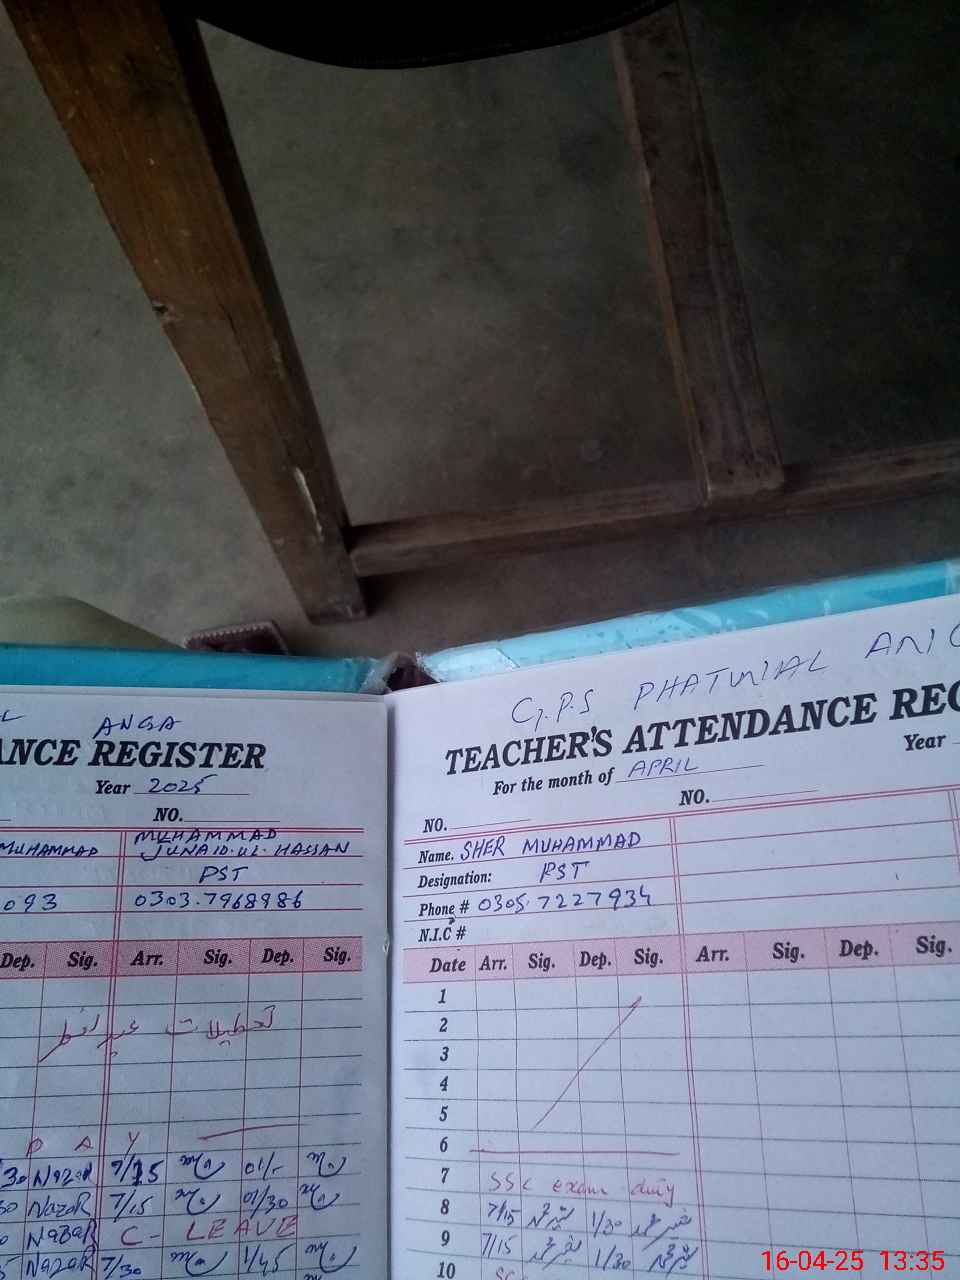 ANGA
ANCE REGISTER
Year 2025
NO.
MUHAMMAD
MUHAMMAD JUNAID.UL.HASSAN
PST
093 0303.7968986
Dep. Sig. Arr. Sig. Dep. Sig.
تعطیلات عید الفطر
D A Y
30 NazaR 7/15 01/-
30 NazaR 7/15 01/30
NazaR C- LEAVE
NazaR 7/30 1/45
G.P.S PHATWAL ANG
TEACHER'S ATTENDANCE REG
For the month of APRIL
Year
NO. NO.
Name. SHER MUHAMMAD
Designation: PST
Phone # 0305.7227934
N.I.C #
Date Arr. Sig. Dep. Sig. Arr. Sig. Dep. Sig.
1
2
3
4
5
6
7 SSC exam duty
8 7/15 شیر محمد 1/30 شیر محمد
9 7/15 شیر محمد 1/30 شیر محمد
10 SSC
16-04-25 13:35